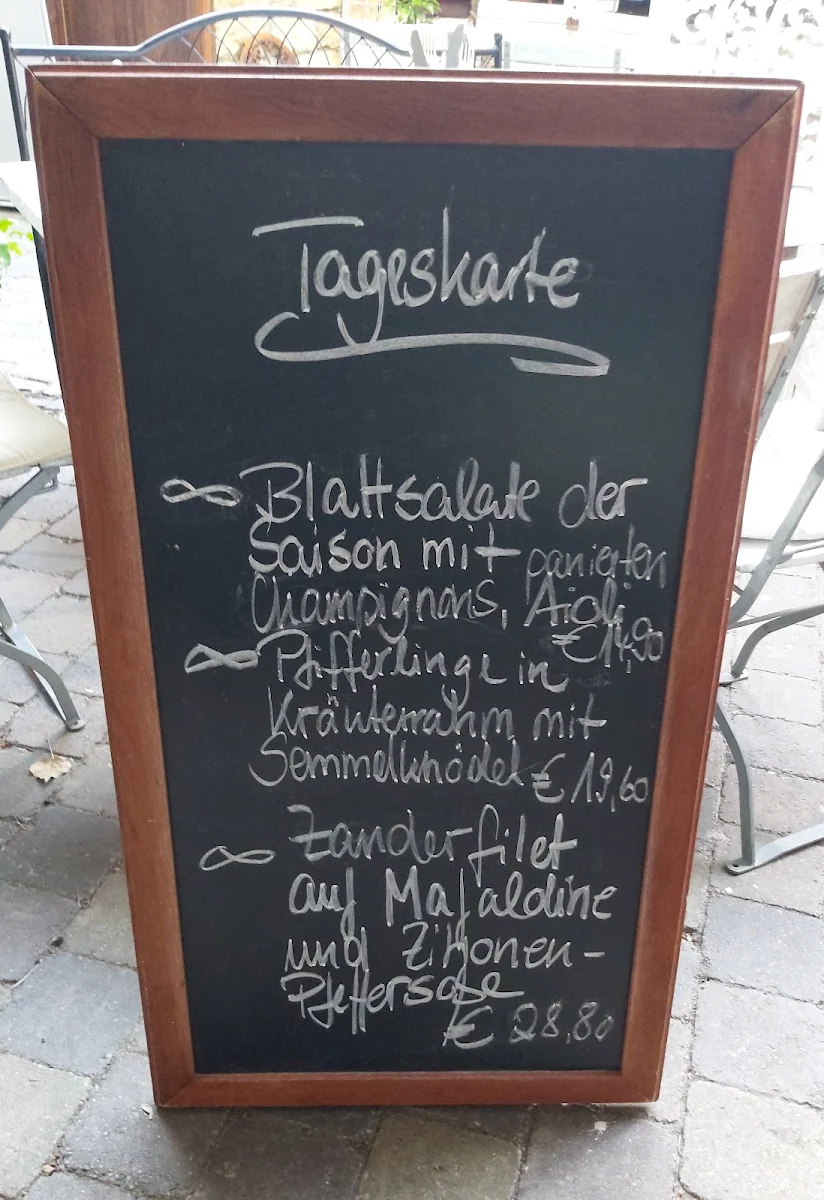 Tageskarte
Blattsalate der
Saison mit panierten
Champignons, Aioli
€14,90
Pfifferlinge in
Kräuterrahm mit
Semmelknödel € 19,60
Zanderfilet
auf Mafaldine
und Zitronen-
Pfeffersoße
€ 28,80